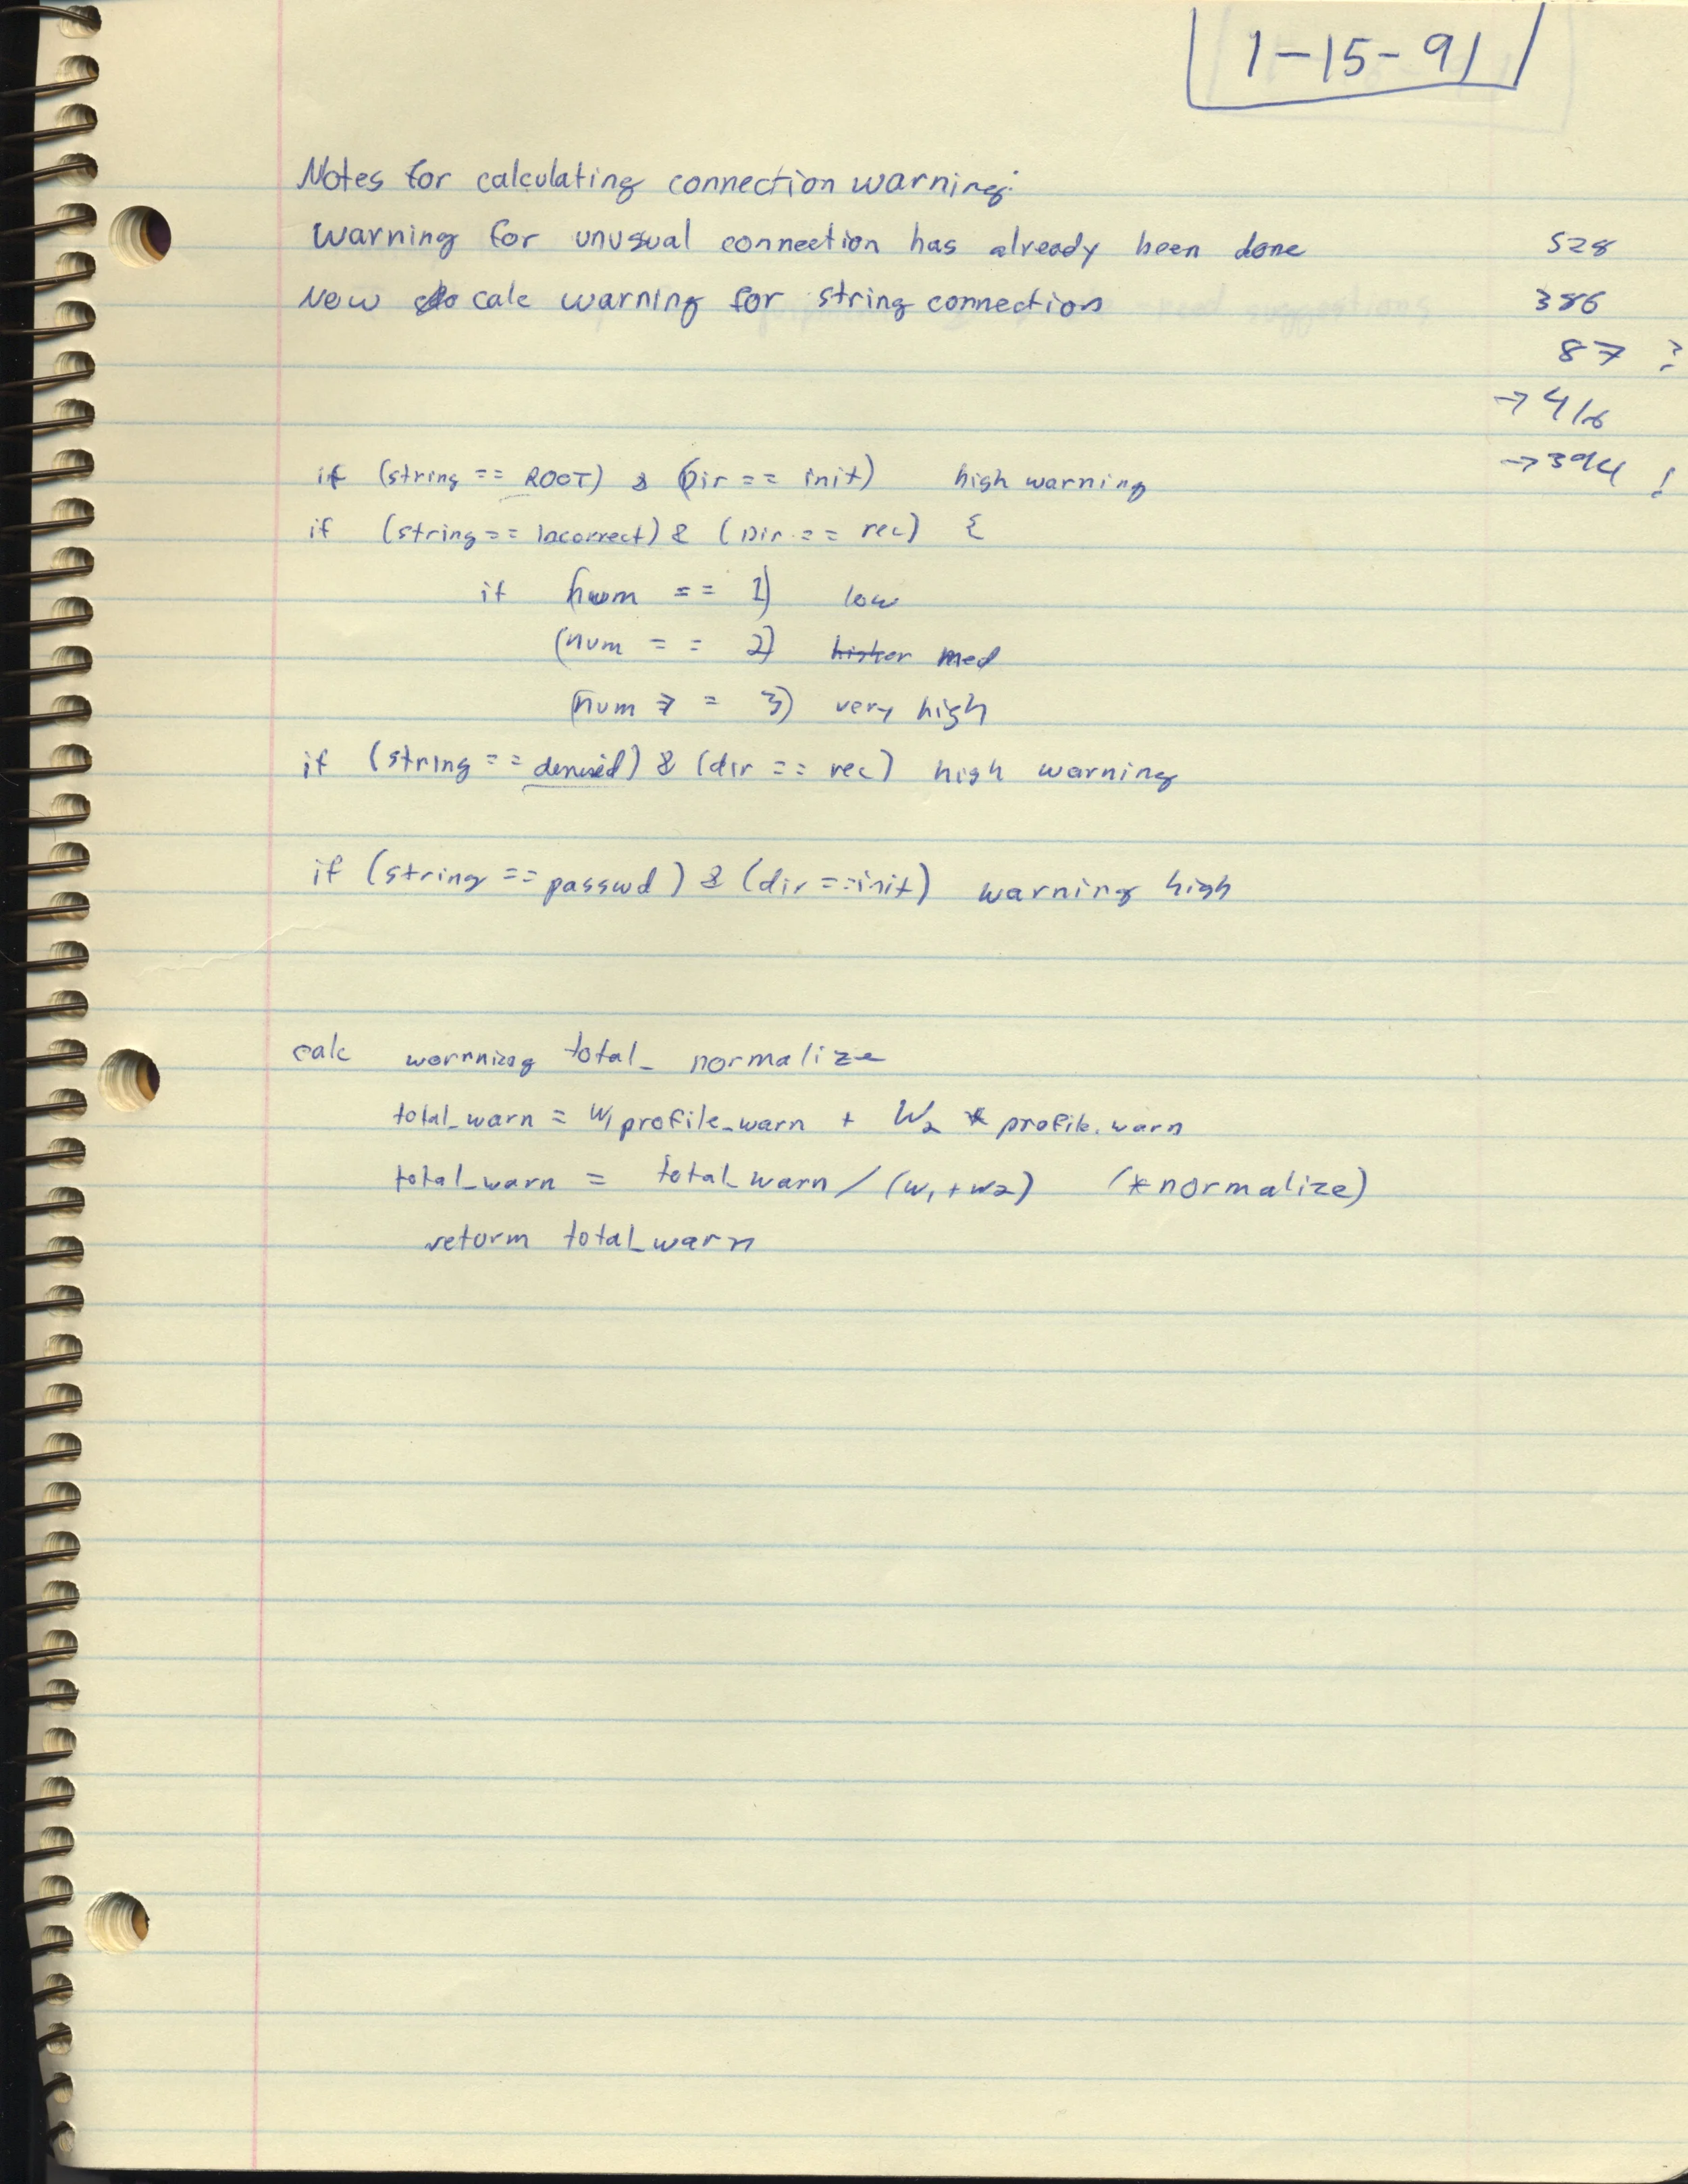 1-15-91
Notes for calculating connection warning:
Warning for unusual connection has already been done
Now do calc warning for string connection
528
386
87 ?
→ 416
→ 394 !
if (string == ROOT) & (Dir == init) high warning
if (string == Incorrect) & (Dir == rec) {
if (num == 1) low
(num == 2) higher med
(num >= 3) very high
if (string == denied) & (dir == rec) high warning
if (string == passwd) & (dir == init) warning high
calc warnning total_ normalize
total_warn = W1 profile_warn + W2 * profile_warn
total_warn = total_warn / (w1 + w2) (*normalize)
return total_warn